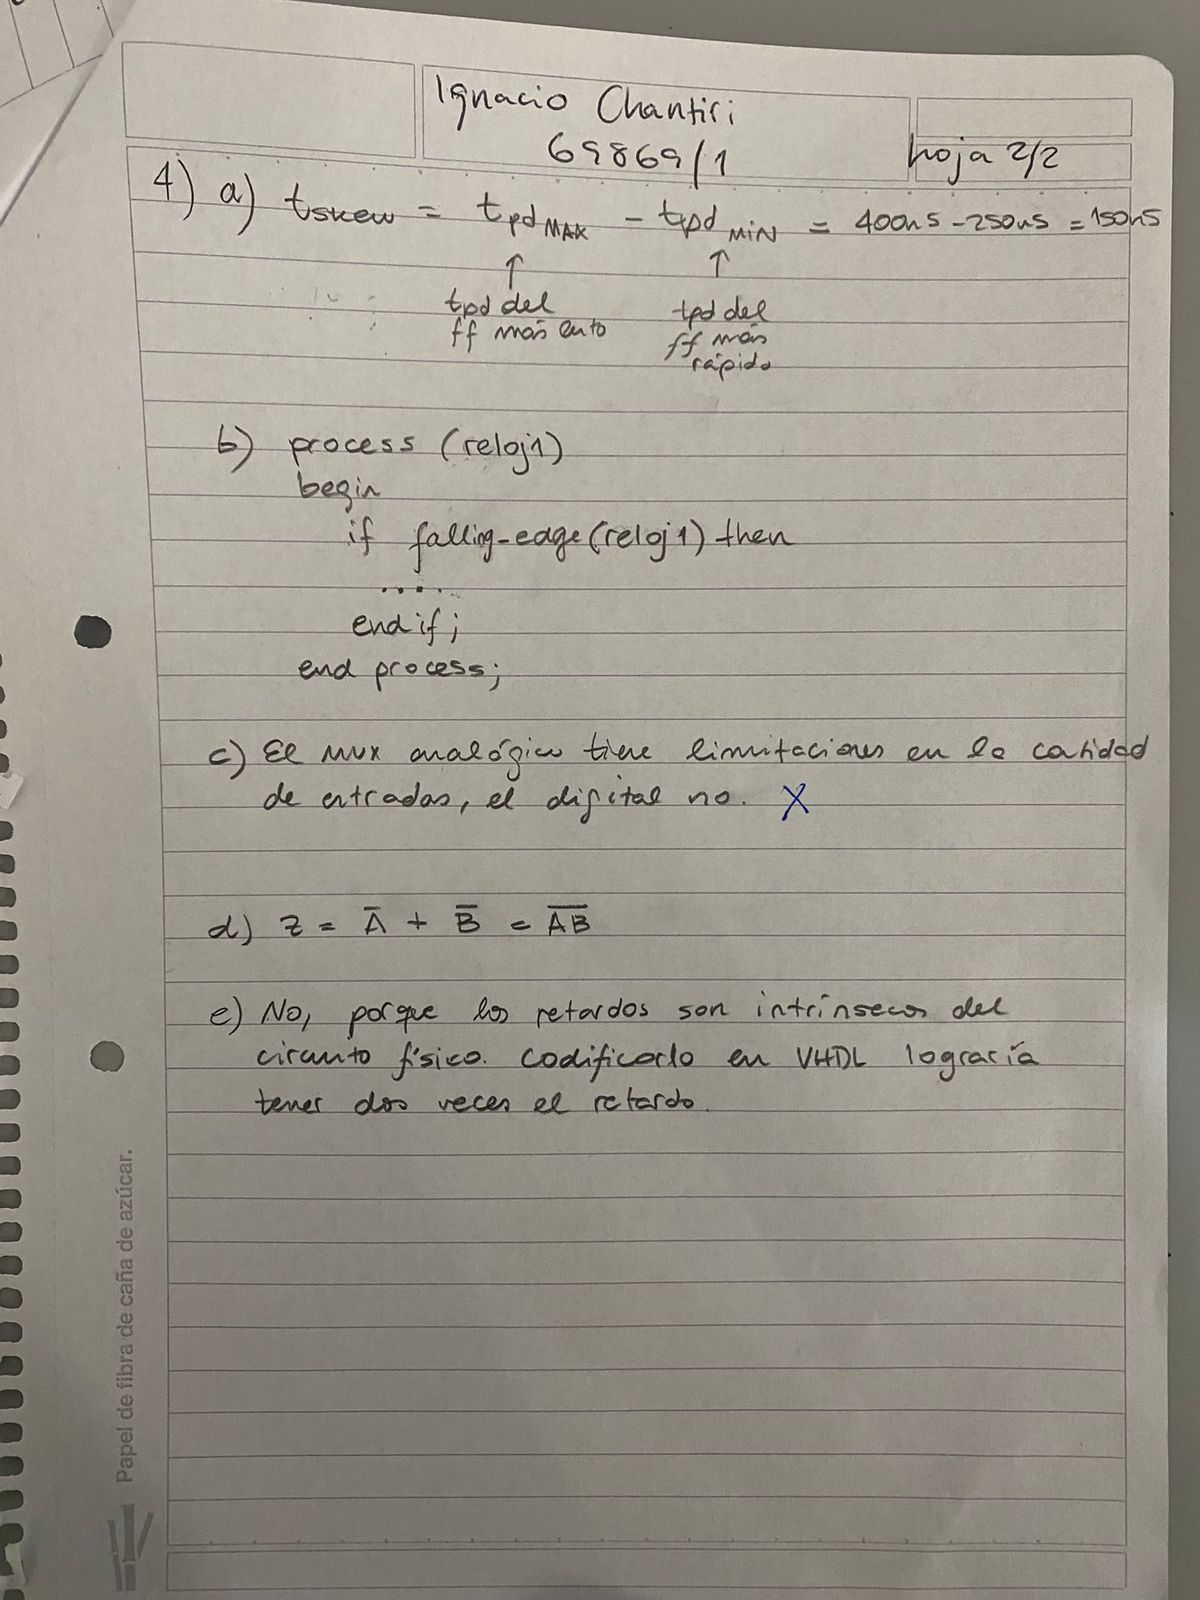 Ignacio Chantiri
69869/1
hoja 2/2
4) a) tskew = tpd MAX - tpd MIN = 400ns - 250ns = 150ns
↑ ↑
tpd del tpd del
ff más lento ff más
rápido
b) process (reloj1)
begin
if falling-edge(reloj1) then
.....
end if;
end process;
c) El mux analógico tiene limitaciones en la cantidad
de entradas, el digital no. X
d) Z = A̅ + B̅ = A̅B̅
e) No, porque los retardos son intrínsecos del
circuito físico. Codificarlo en VHDL lograría
tener dos veces el retardo.
Papel de fibra de caña de azúcar.